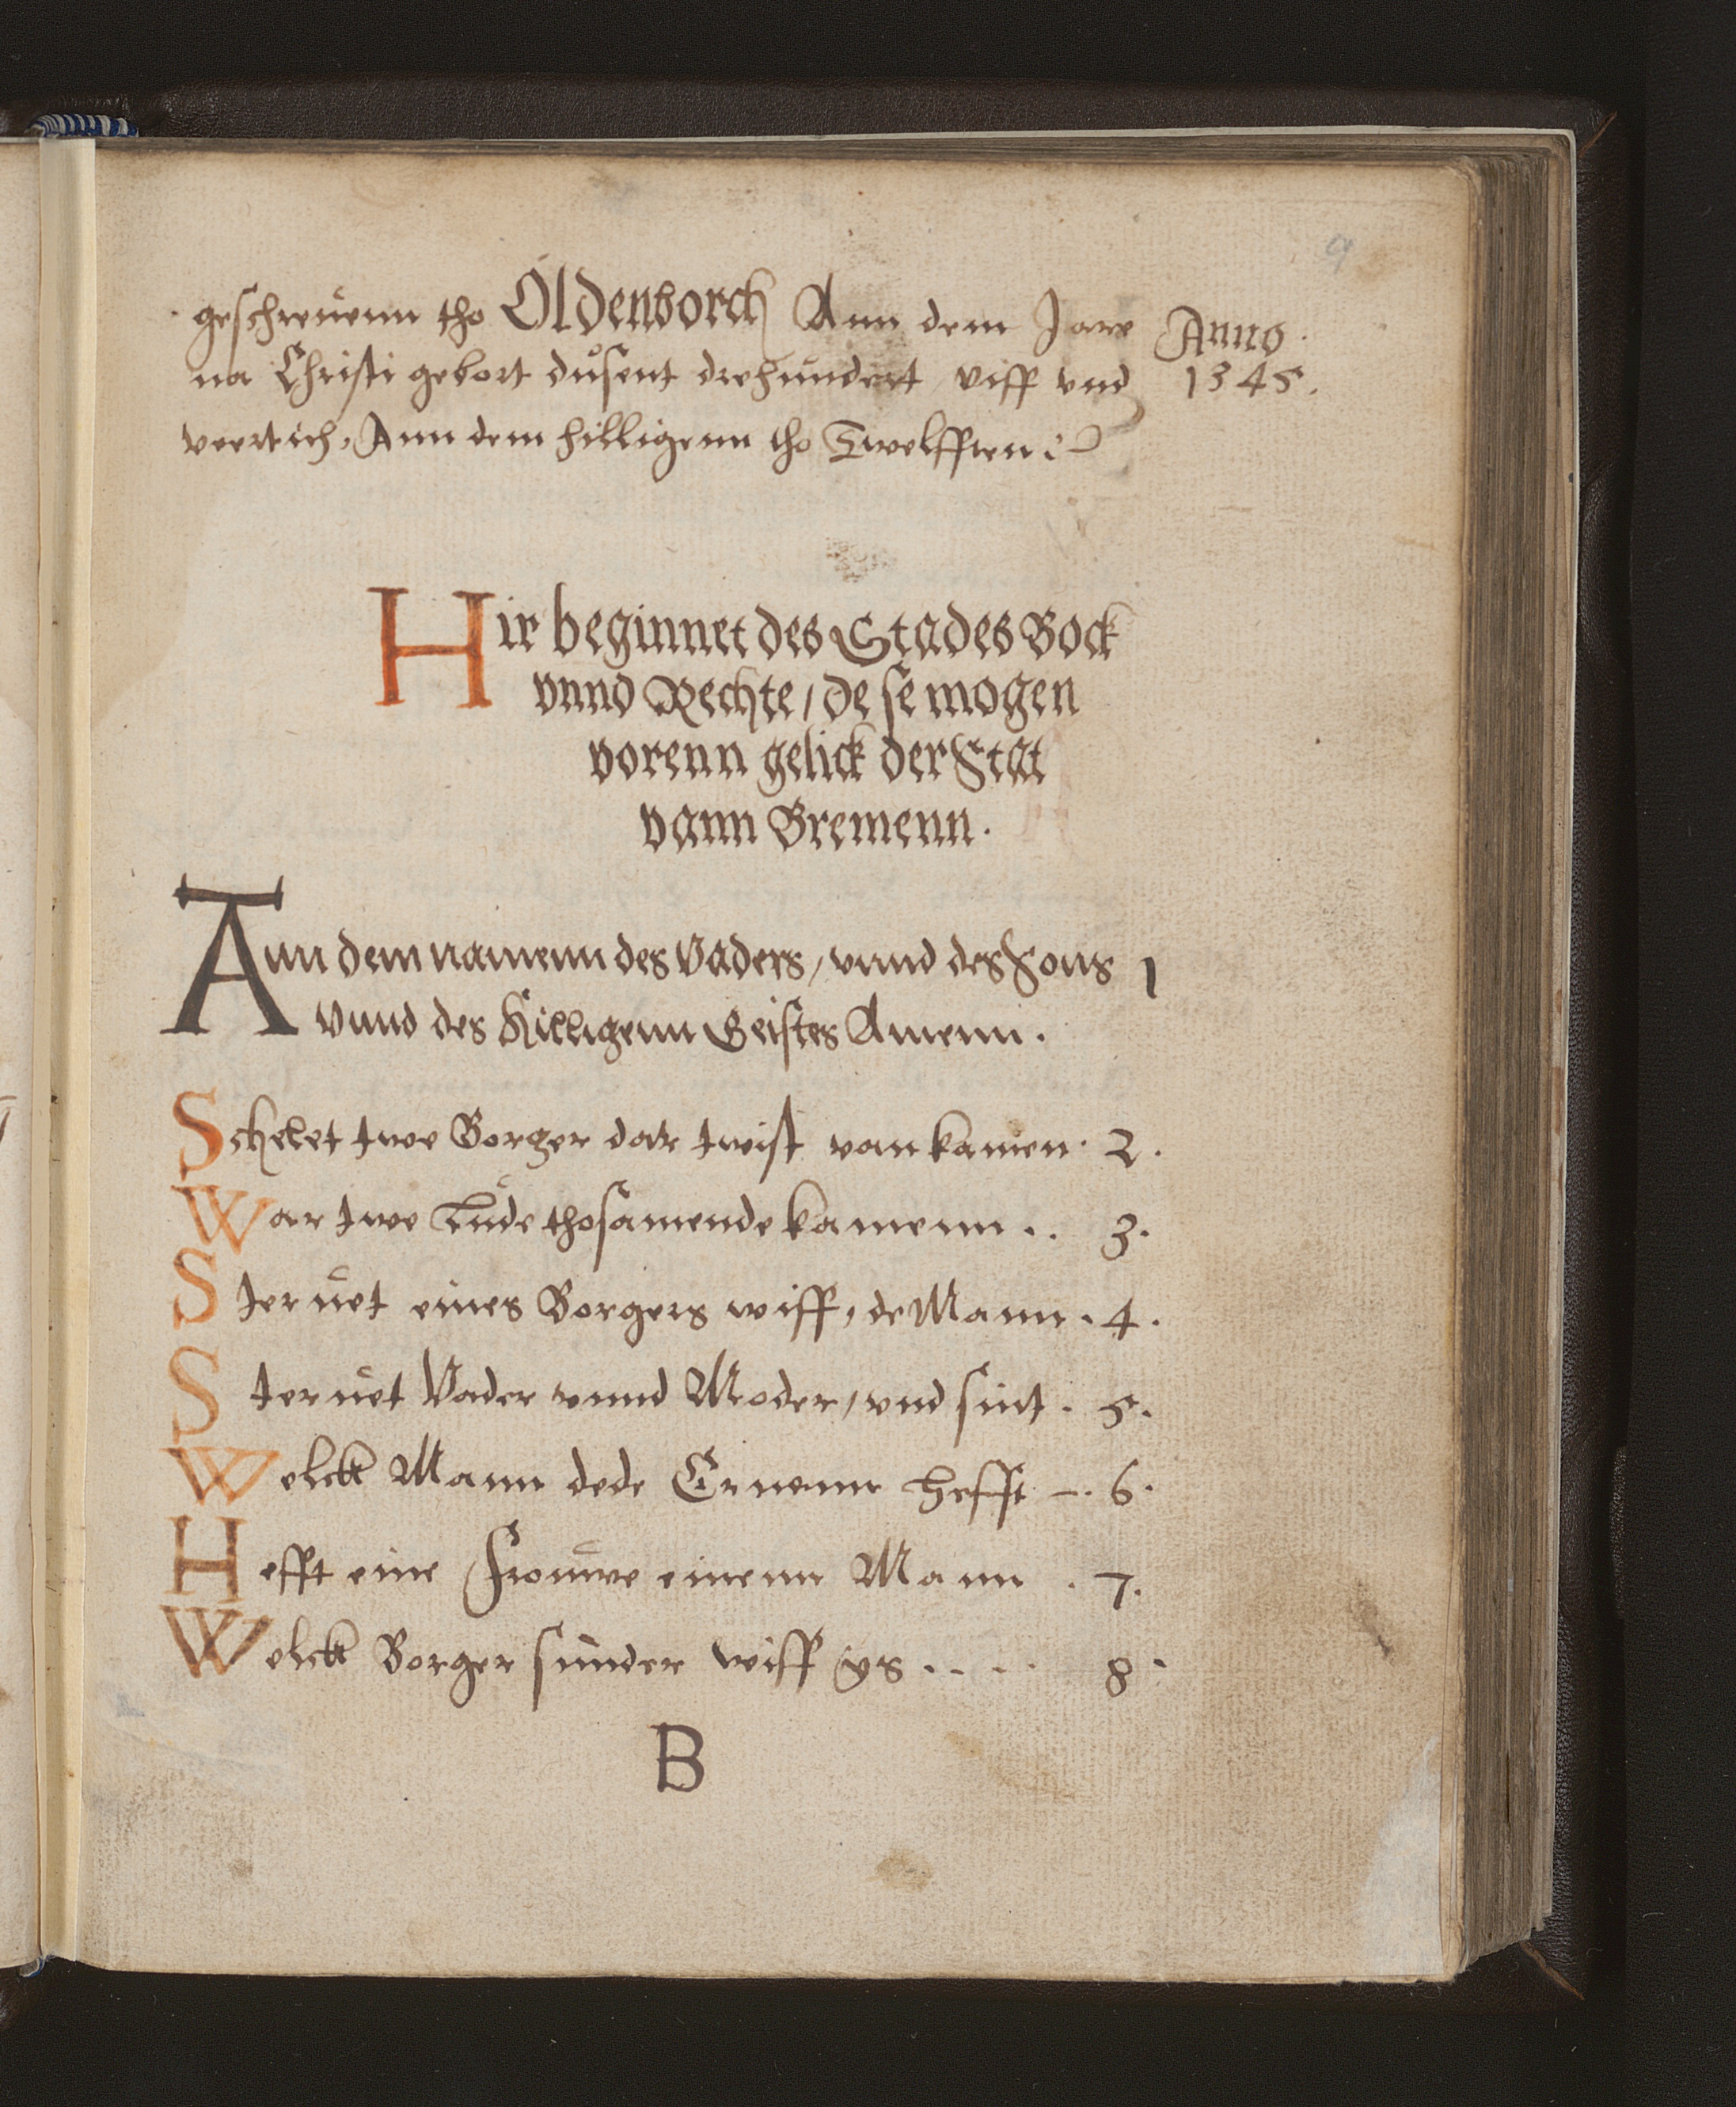 9
geschreuenn tho Oldenborch Ann dem Jare Anno
na Christi gebort dusent drehundert viff vnd 1345.
veertich, Ann dem hilligenn tho Twelfften
Hir beginnet des Stades Bock
vnnd Rechte / de se mogen
vorenn gelick der Stat
vann Bremenn.
Ann dem namenn des Vaders, vnnd des Sons 1
Vnnd des Hilligenn Geistes Amenn.
Schelet twe Borger dar twist van kamen. 2.
War twe Lude thosamende kamenn.. 3.
Steruet eines Borgers wiff, de Mann. 4.
Steruet Vader vnnd Moder, vnd sint. 5.
Welck Mann dede Eruenn hefft -. 6.
Hefft eine Frouwe einenn Mann . 7.
Welck Borger sunder wiff ys .... 8.
B